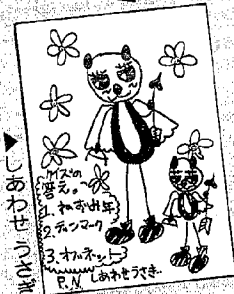 クイズの
答え。
1. ねずみ年
2. デンマーク
3. オルネット
P.N. しあわせうさぎ
▶しあわせうさぎ